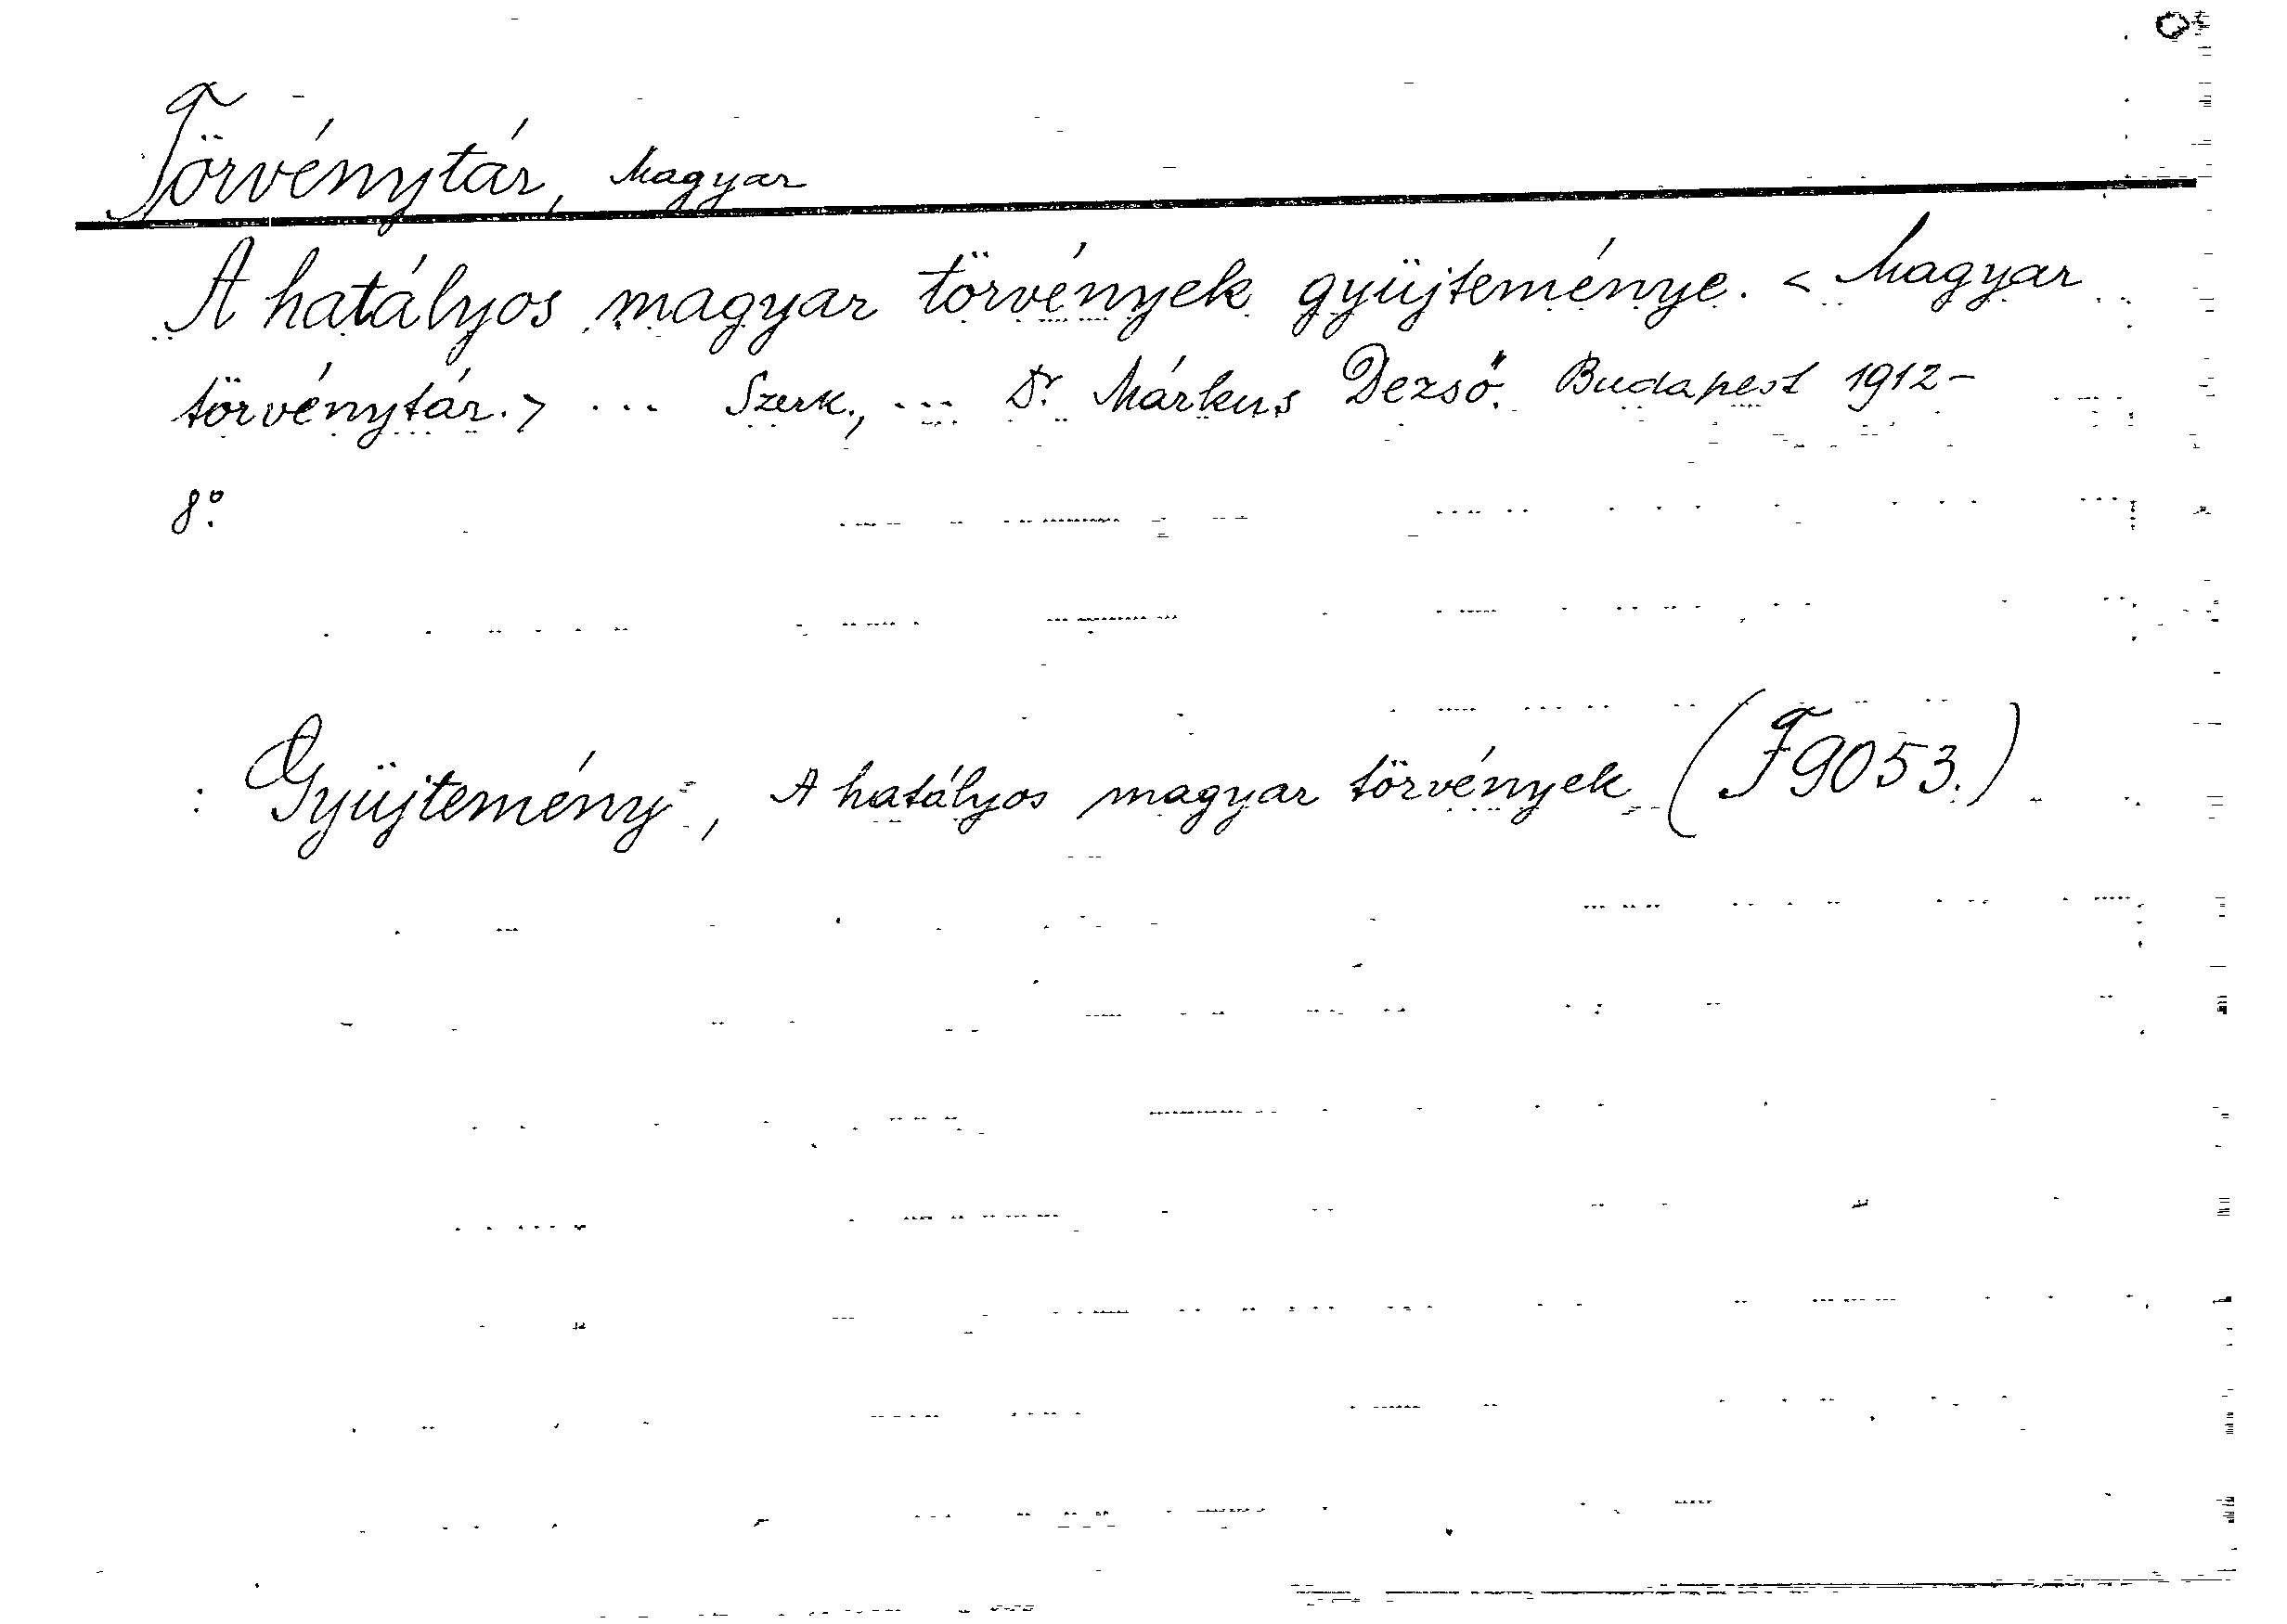 Törvénytár, Magyar
A hatályos magyar törvények gyüjteménye. < Magyar
törvénytár. > ... Szerk., ... Dr. Márkus Dezső. Budapest 1912-
8°.
: Gyüjtemény, A hatályos magyar törvények (F9053.)